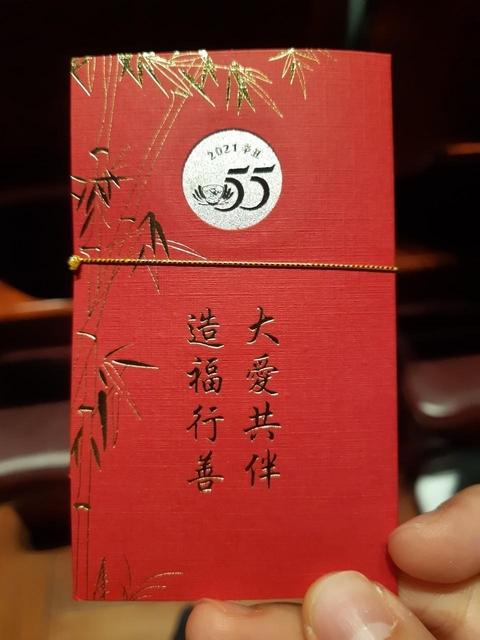 2021 辛丑
55
大愛共伴
造福行善